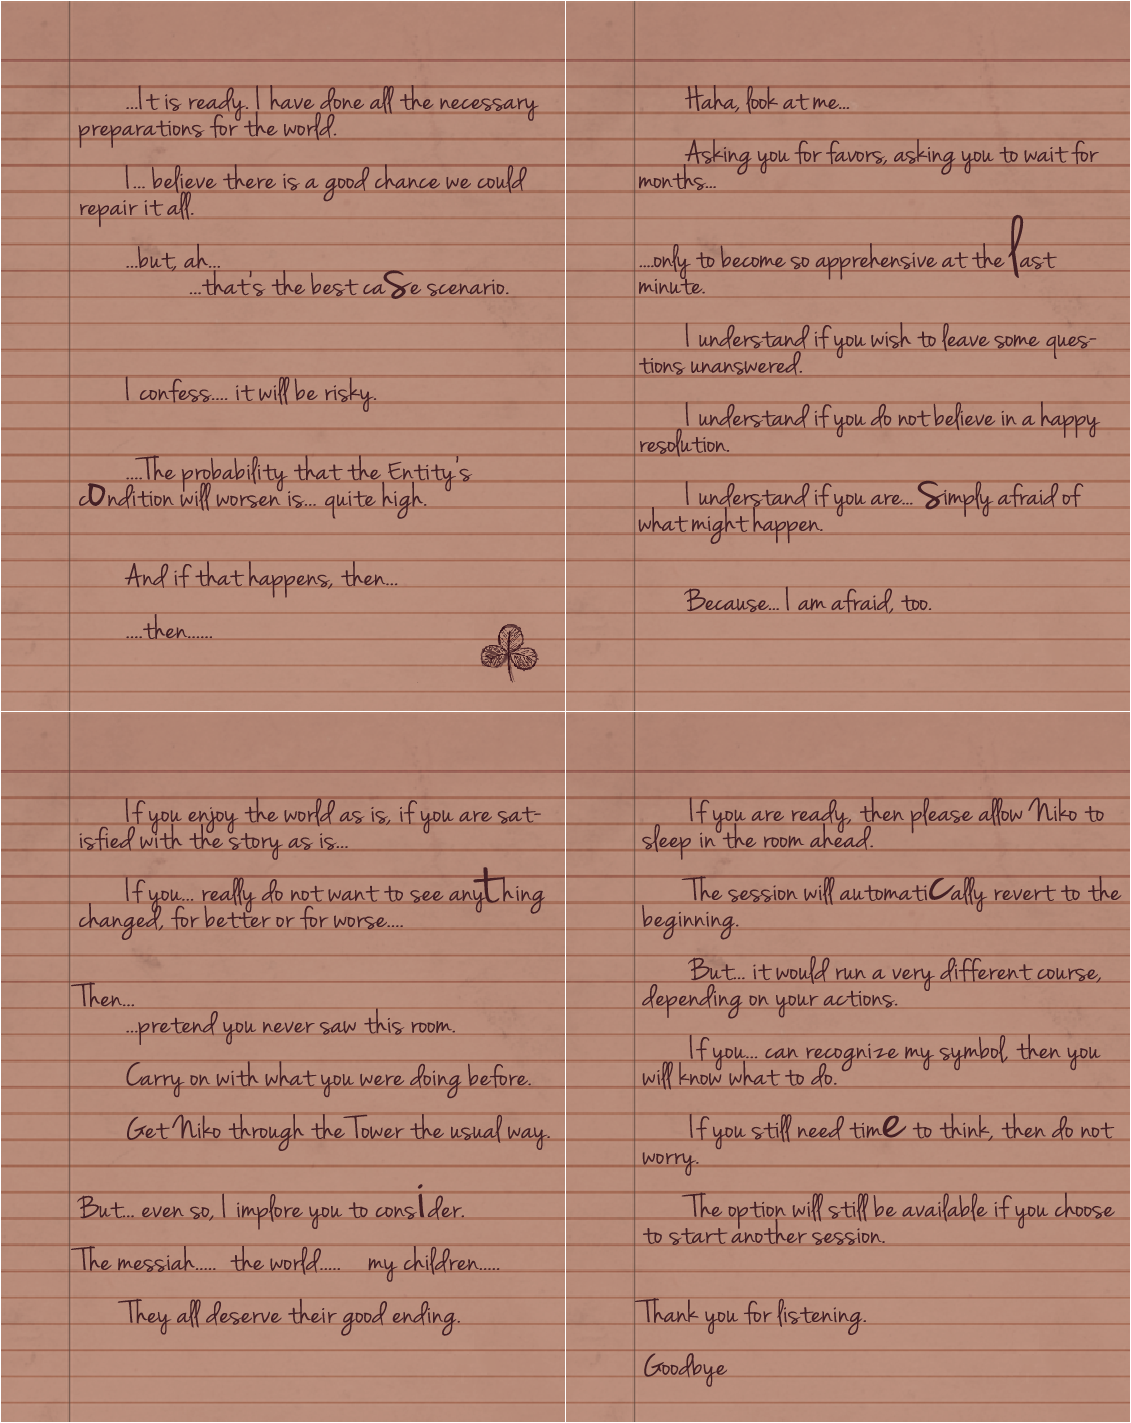 ...It is ready. I have done all the necessary
preparations for the world.
I... believe there is a good chance we could
repair it all.
...but, ah...
...that's the best caSe scenario.
I confess.... it will be risky.
....The probability that the Entity's
cOndition will worsen is... quite high.
And if that happens, then...
....then......
Haha, look at me...
Asking you for favors, asking you to wait for
months...
....only to become so apprehensive at the last
minute.
I understand if you wish to leave some ques-
tions unanswered.
I understand if you do not believe in a happy
resolution.
I understand if you are... Simply afraid of
what might happen.
Because... I am afraid, too.
If you enjoy the world as is, if you are sat-
isfied with the story as is...
If you... really do not want to see anything
changed, for better or for worse....
Then...
...pretend you never saw this room.
Carry on with what you were doing before.
Get Niko through the Tower the usual way.
But... even so, I implore you to consider.
The messiah..... the world..... my children.....
They all deserve their good ending.
If you are ready, then please allow Niko to
sleep in the room ahead.
The session will automatiCally revert to the
beginning.
But... it would run a very different course,
depending on your actions.
If you... can recognize my symbol, then you
will know what to do.
If you still need time to think, then do not
worry.
The option will still be available if you choose
to start another session.
Thank you for listening.
Goodbye